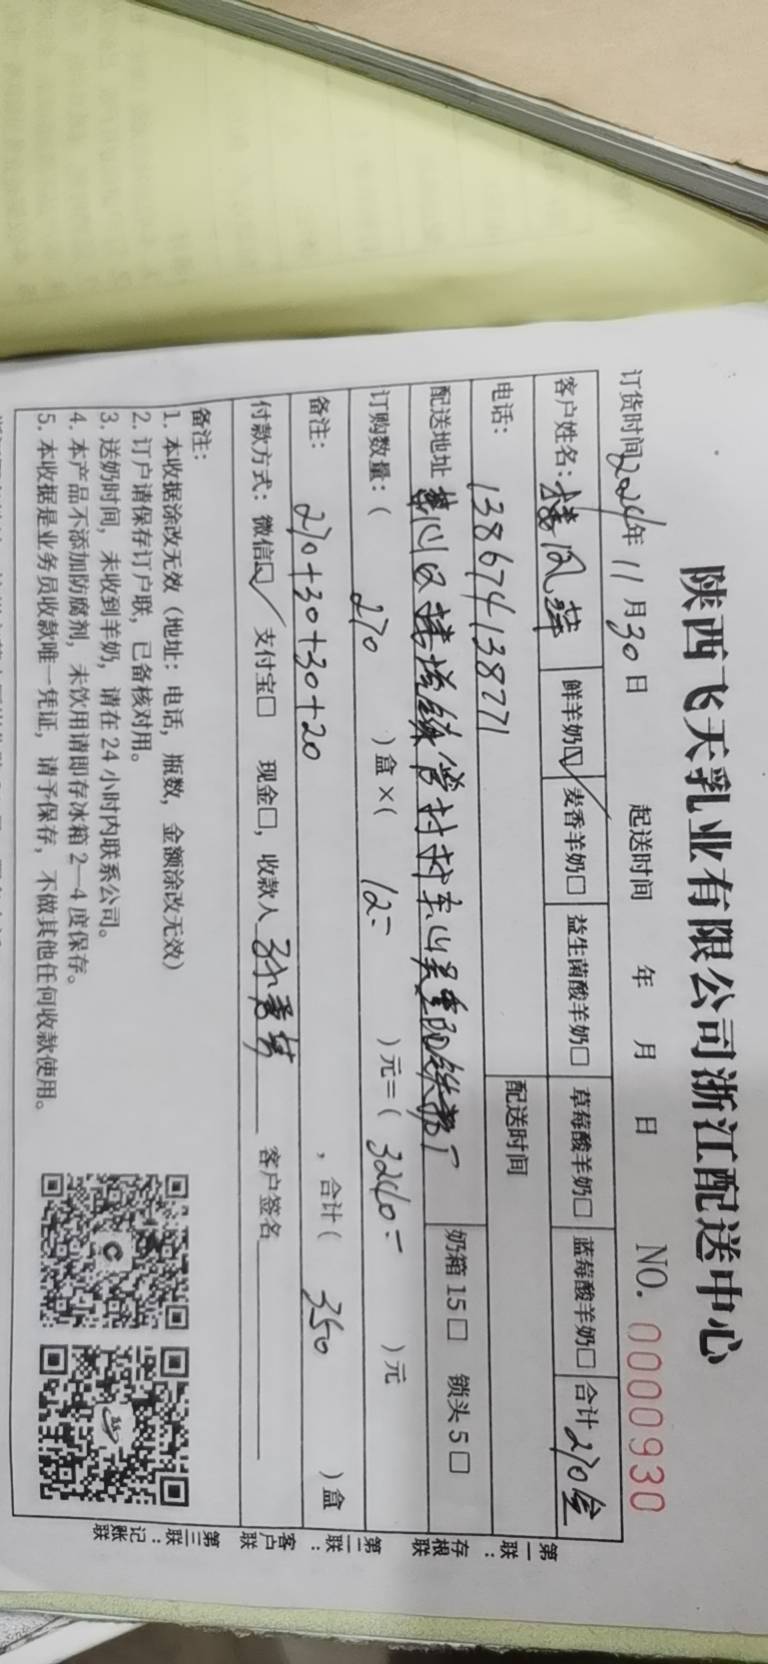 陕西飞天乳业有限公司浙江配送中心
订货时间2024年11月30日 起送时间 年 月 日 NO. 0000930
客户姓名：楼凤萍 鲜羊奶☑ 麦香羊奶□ 益生菌酸羊奶□ 草莓酸羊奶□ 蓝莓酸羊奶□ 合计270盒
电话：13867413877 配送时间
配送地址 萧山区楼塔镇管村村东山吴 奶箱 15□ 锁头 5□
订购数量：（ 270 ）盒×（ 12= ）元=（ 3240= ）元
备注： 270+30+30+20 ，合计（ 350 ）盒
付款方式：微信☑ 支付宝□ 现金□，收款人 客户签名
备注：
1. 本收据涂改无效（地址：电话，瓶数，金额涂改无效）
2. 订户请保存订户联，已备核对用。
3. 送奶时间，未收到羊奶，请在 24 小时内联系公司。
4. 本产品不添加防腐剂，未饮用请即存冰箱 2—4 度保存。
5. 本收据是业务员收款唯一凭证，请予保存，不做其他任何收款使用。
第一联：存根联
第二联：客户联
第三联：记账联